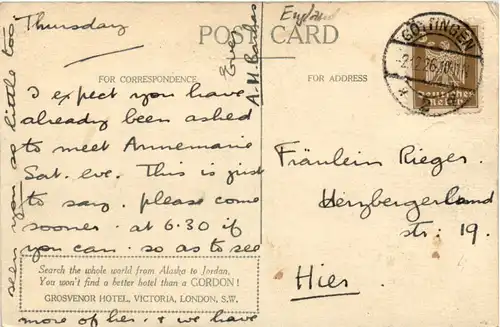 Thursday
POST CARD
England
GÖTTINGEN
Deutsches Reich
FOR CORRESPONDENCE
FOR ADDRESS
I expect you have
already been asked
to meet Annemarie
Sat. eve. This is just
to say, please come
sooner. at 6.30 if
you can. so as to see
Search the whole world from Alaska to Jordan,
You won't find a better hotel than a GORDON!
GROSVENOR HOTEL, VICTORIA, LONDON, S.W.
more of her. & we have
seen you so little too.
Ever
Fräulein Rieger.
Herzbergerland
str: 19.
Hier.